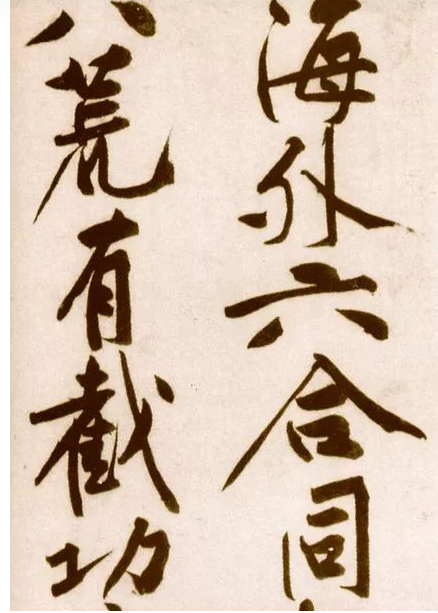 海外六合同
八荒有截功